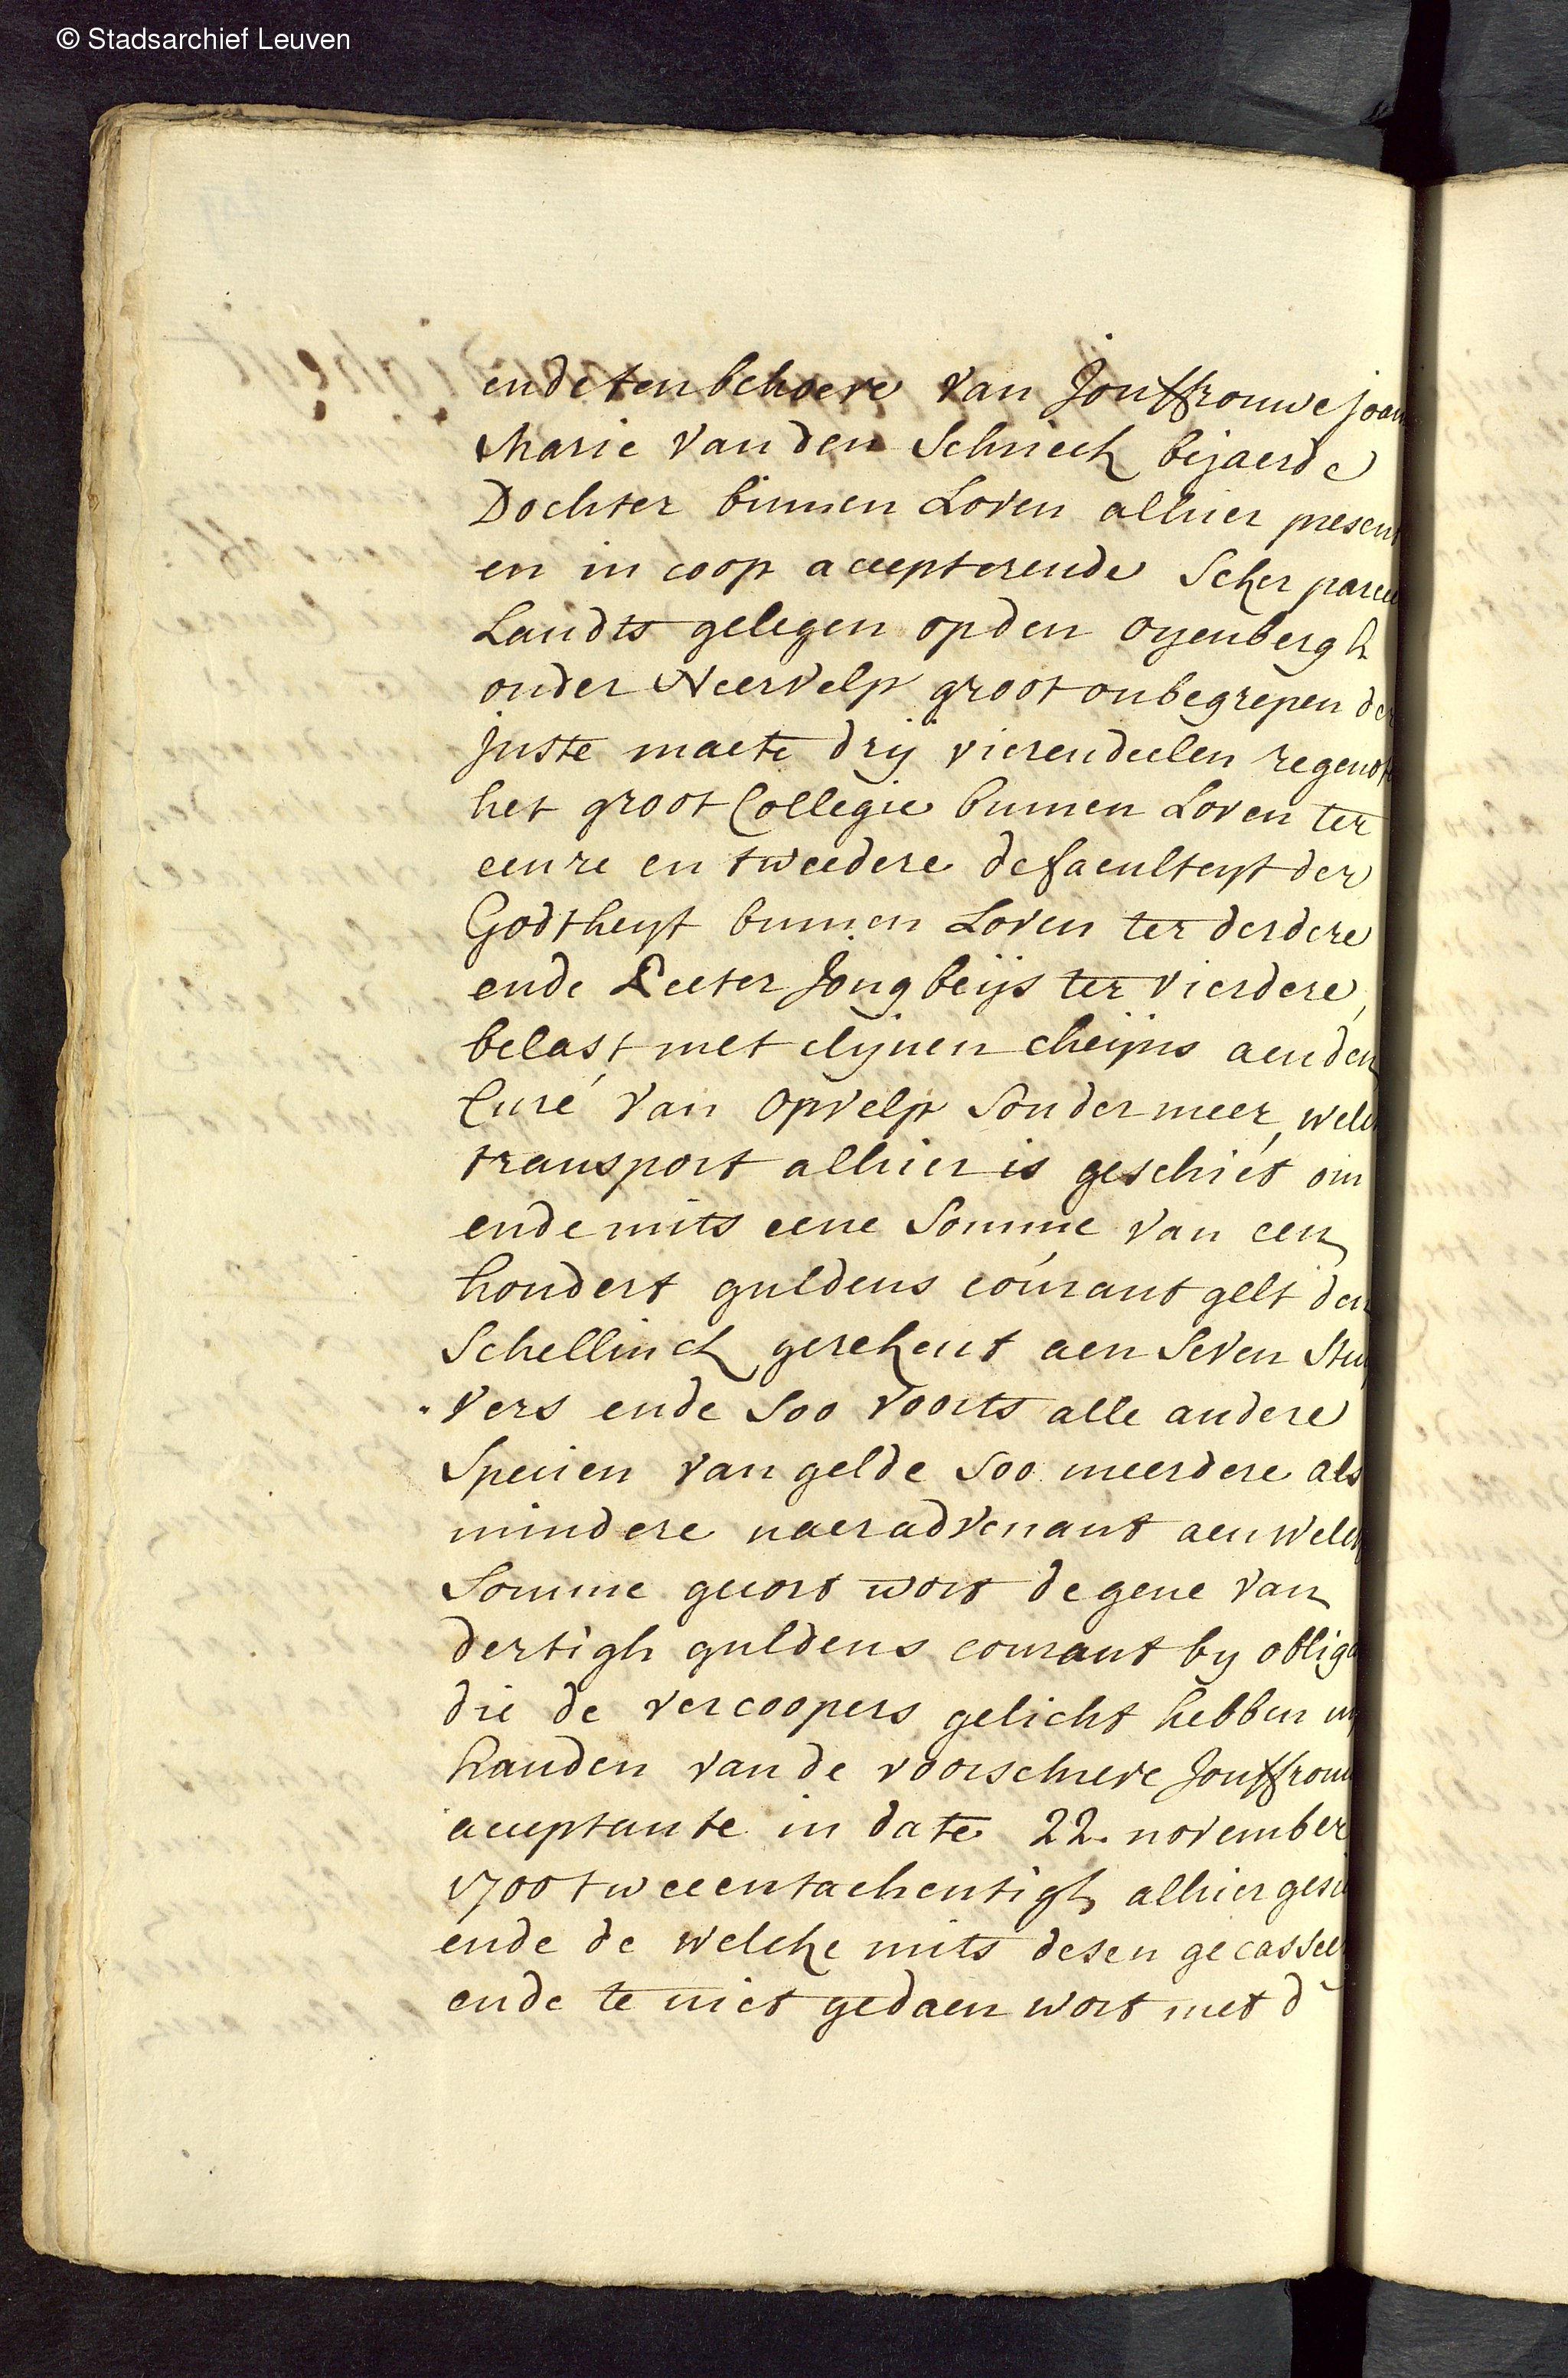 © Stadsarchief Leuven
ende ten behoeve van Jouffrouwe joan
Marie van den Schrieck bejaerde
Dochter binnen Loven alhier present
en in coop accepterende Seker parcee
Landts gelegen op den oyenbergh
onder Neervelp groot onbegrepen der
juste maete drij vierendeelen regenote
het groot Collegie binnen Loven ter
eenre en tweedere de faculteyt der
Godtheyt binnen Loven ter derdere
ende Peeter Jongbeijs ter vierdere,
belast met clijnen cheijns aen den
Curé van opvelp sonder meer, welck
transport alhier is geschiet om
ende mits eene Somme van een
hondert guldens courant gelt den
Schellinck gerekent aen Seven Stuy
vers ende Soo voorts alle andere
Specien van gelde Soo meerdere als
mindere naer advenant aen welck
Somme gecort wort de gene van
dertigh guldens courant by obliga
die de vercoopers gelicht hebben uyt
handen van de voorschreve Jouffrouw
acceptante in date 22. november
1700 tweeentachentigh alhier gesie
ende de welcke mits desen gecasseer
ende te niet gedaen wort met d